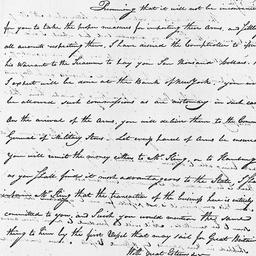 Presuming that it will not be inconvenient
for you to take the proper measures for importing these Arms, and settle
all accounts respecting them. I have desired the Comptroller to
his Warrant to the Treasurer to pay you Ten thousand dollars.
I expect will be done at the Bank of New York. you
be allowed such commissions as are customary in such cases
On the arrival of the Arms, you will deliver them to the Com
General of Military Stores. Let every hazard of Arms be insured
you will remit the money either to Mr. King, or to Hamburg
as you shall find it most advantageous to the State, I
Mr. King that the transaction of the business here is entirely
committed to you, and I wish you would mention the same
thing to him by the first Vessel that may sail for Great Britain
With great Esteem